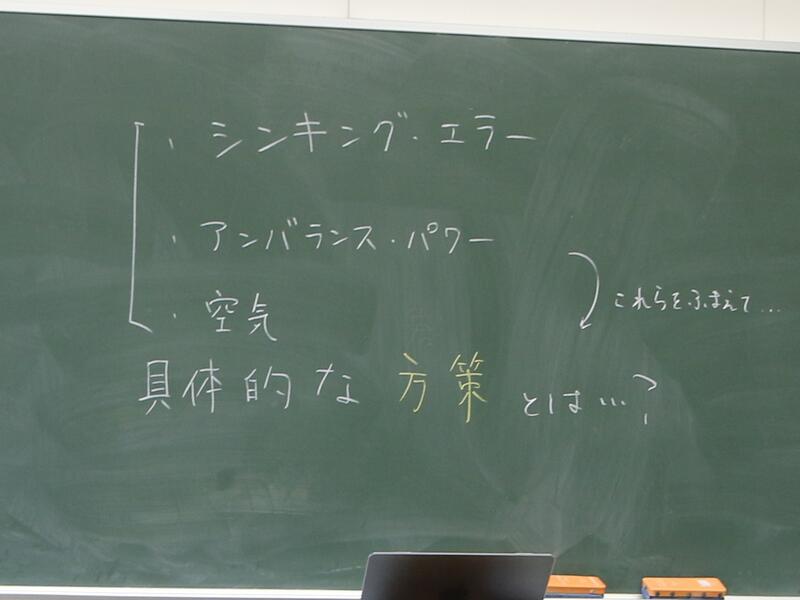 ・シンキング・エラー
・アンバランス・パワー
・空気
これらをふまえて…
具体的な方策とは…?